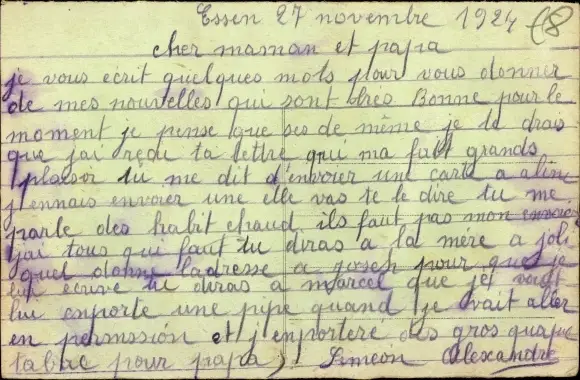 Essen 27 novembre 1924 18
cher maman et papa
je vous ecrit quelques mots pour vous donner
de mes nouvelles qui sont très Bonne pour le
moment je pense que ses de même je te dirais
que jai reçu ta lettre qui ma fait grands
plaisir tu me dit d'envoier une carte a aline
j ennais envoier une elle vas te le dire tu me
parle des habit chaud ils faut pas mon envoier
jai tous qui faut tu diras a la mère a joli
quel donne ladresse a joseph pour que je
lui ecrive tu diras a marcel que jet vait
lui enporte une pipe quand je vait aller
en permission et j enporteré des gros
tabac pour papa Simeon Alexandre